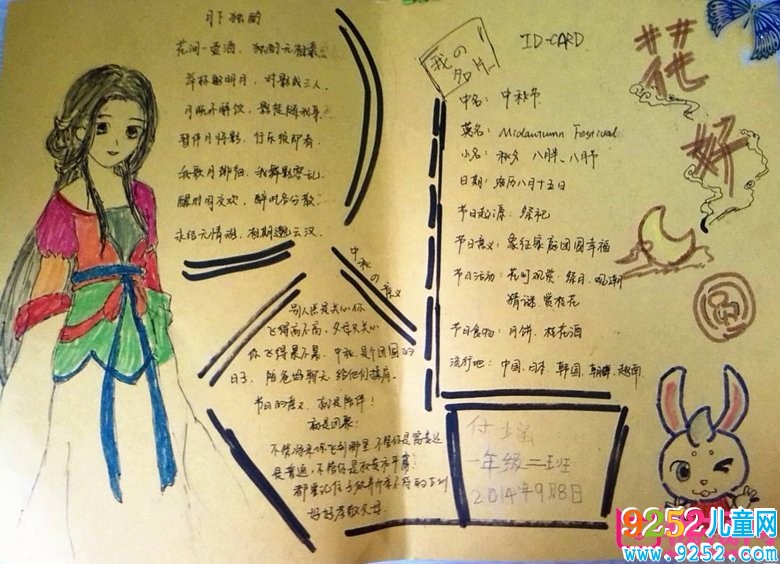 月下独酌
花间一壶酒，独酌无相亲。
举杯邀明月，对影成三人。
月既不解饮，影徒随我身。
暂伴月将影，行乐须即春。
我歌月徘徊，我舞影零乱。
醒时同交欢，醉后各分散。
永结无情游，相期邈云汉。
中秋の意义
别人总是关心你
飞得高不高，父母只关心
你飞得累不累，中秋是个团圆的
日子，陪爸妈聊天，给他们揉肩。
节日的意义，就是陪伴！
就是回家！
不管将来你飞到哪里，不管你是富贵还
是普通，不管你是
好好孝敬父母
我の名片
ID-CARD
中名：中秋节
英名：Midautumn Festival
小名：秋夕、八月半、八月节
日期：农历八月十五日
节日起源：祭祀
节日意义：象征家庭团圆幸福
节日活动：花灯观赏、祭月、观潮
猜谜、赏桂花
节日食物：月饼、桂花酒
流行地：中国、日本、韩国、朝鲜、越南
付瑶
一年级二班
2014年9月8日
花好
月
圆
9252儿童网
www.9252.com